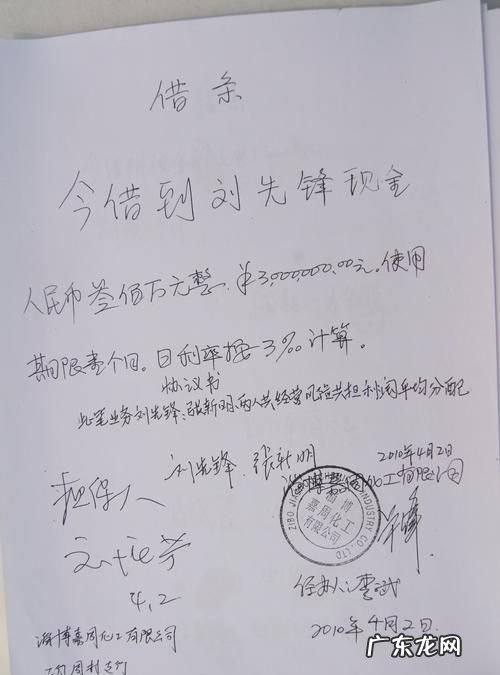 借条
今借到刘先锋现金
人民币叁佰万元整.¥3,000,000.00元.使用
期限壹个月.日利率按3‰计算。
协议书
此笔业务刘先锋、张新明两人共经营风险共担利润平均分配
刘先锋 张新明 2010年4月2日
担保人
ZIBO JIA INDUSTRY CO.,LTD
淄博
嘉周化工
有限公司
4.2
经办人:李斌
2010年4月2日.
淄博嘉周化工有限公司
广东龙网